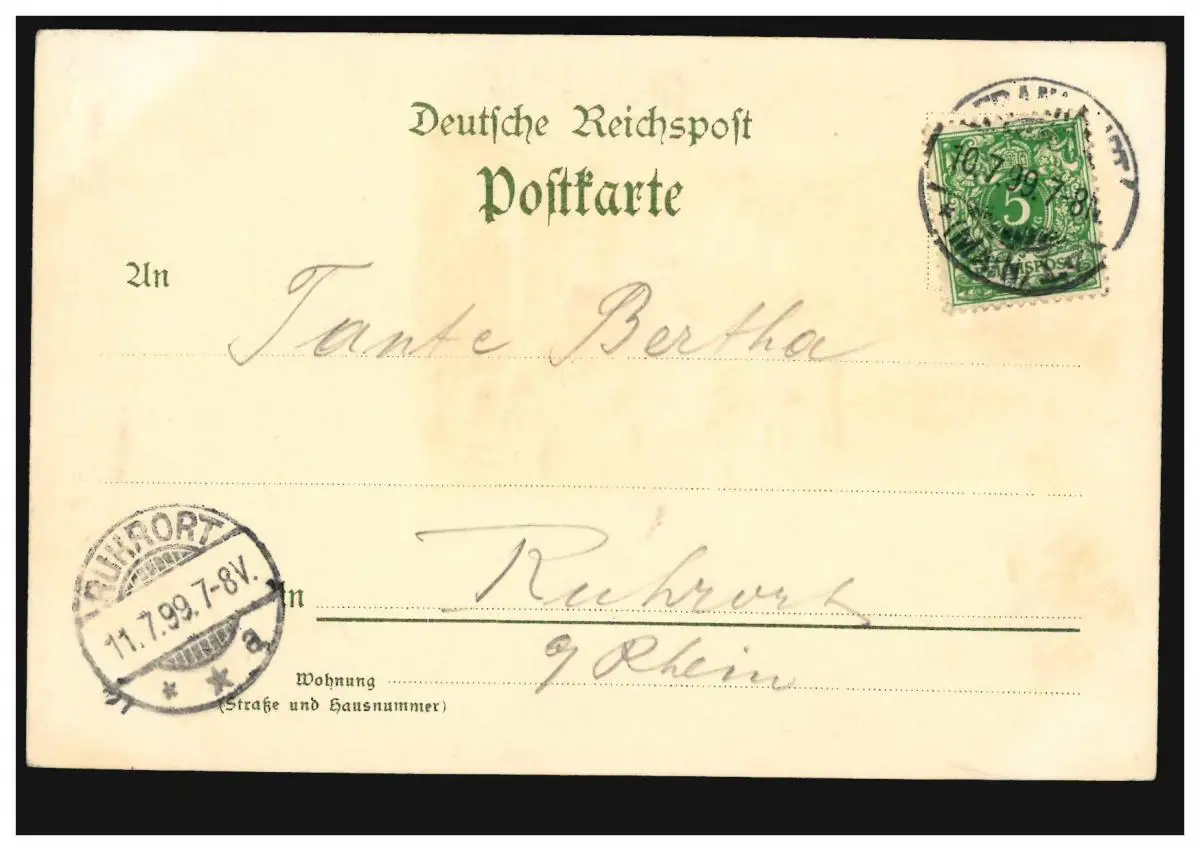 Deutsche Reichspost
Postkarte
FRANKFURT
10.7.99.7-8N.
(MAIN)
5
REICHSPOST
An
Tante Bertha
RUHRORT
11.7.99.7-8V.
* * a
In
Ruhrort
a/ Rhein
Wohnung
(Straße und Hausnummer)